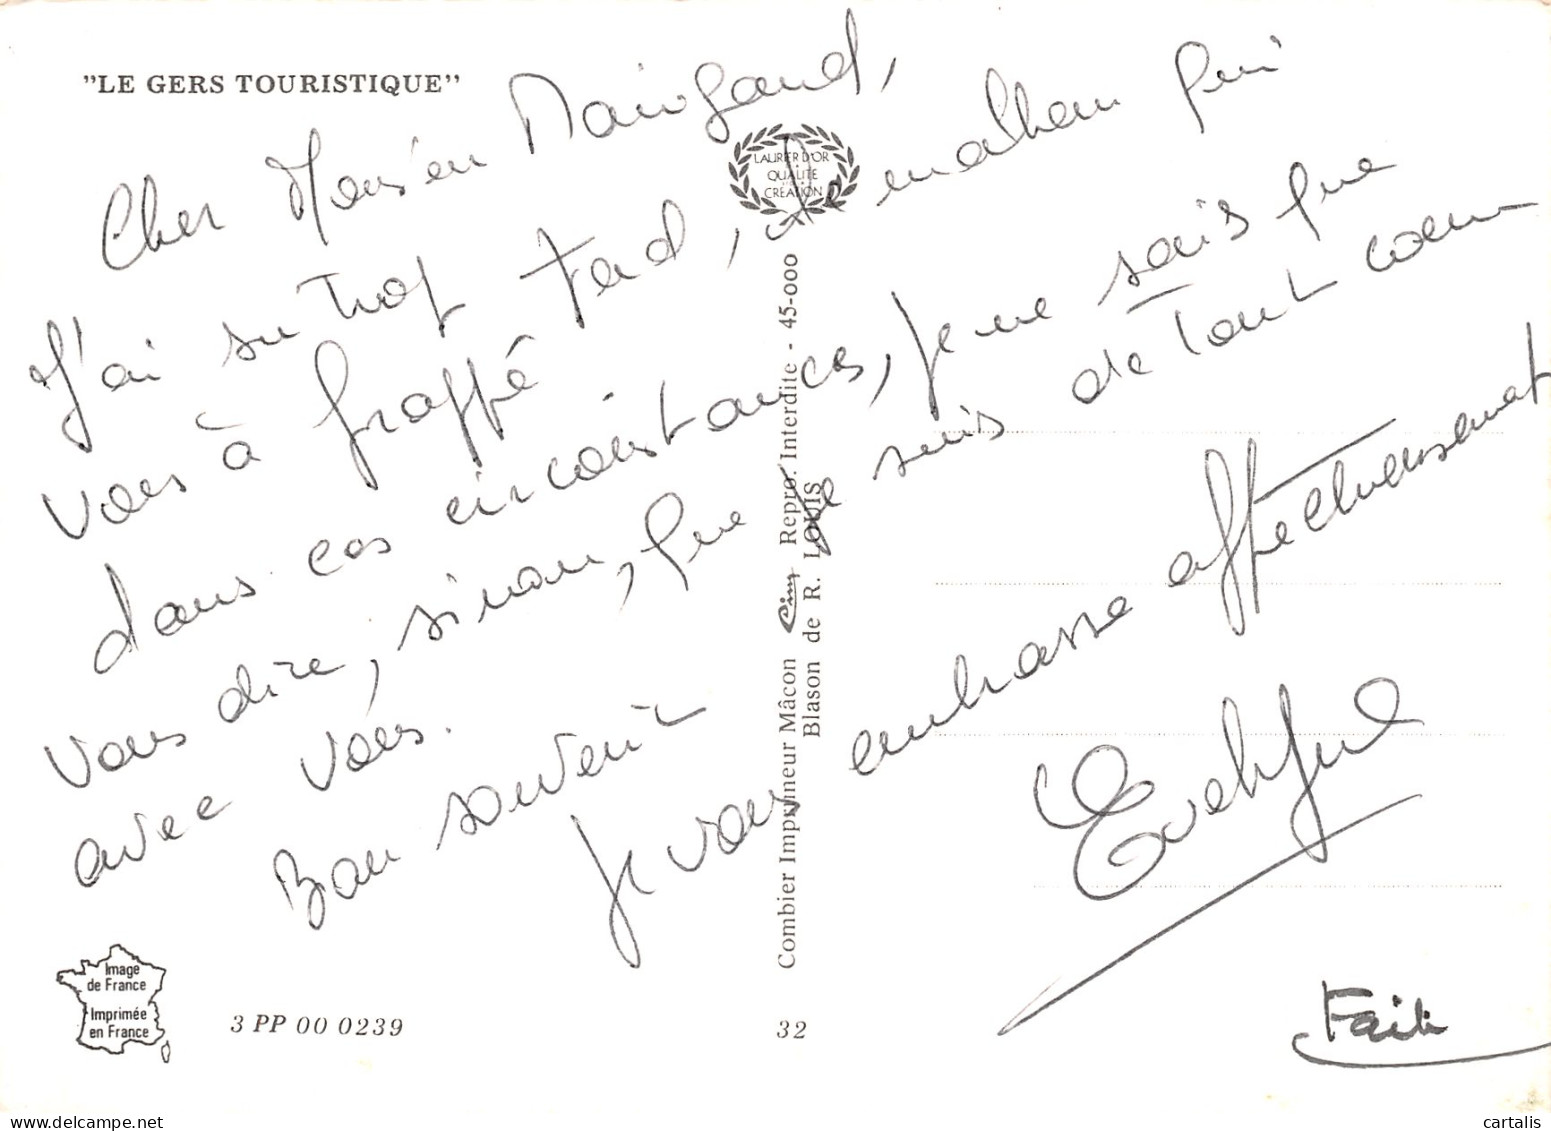 "LE GERS TOURISTIQUE"
Cher Monsieur Maingaud,
J'ai su trop tard, le malheur qui
vous à frappé
dans ces circonstances, je ne sais que
vous dire, sinon, que je suis de tout coeur
avec vous.
Bon souvenir
Je vous embrasse affectueusement
Evelyne
Fait
LAURIER D'OR
QUALITÉ
CRÉATION
Combier Imprimeur Mâcon Cim Repro. Interdite - 45-000
Blason de R. LOUIS
Image
de France
Imprimée
en France
3 PP 00 0239
32
cartalis